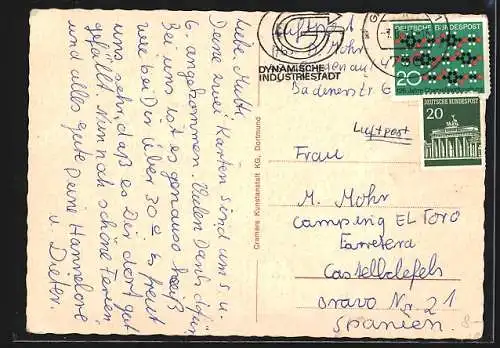 Liebe Mutti
Deine zwei Karten sind am 5. u.
6. angekommen. Vielen Dank dafür
Bei uns ist es genauso heiß
wie bei Dir über 30°. Es freut
uns sehr, daß es Dir dort gut
gefällt. Nun noch schöne Ferien
und alles gute Deine Hannelore
u. Dieter.
Cramers Kunstanstalt KG, Dortmund
Luftpost
M. Mohr
DYNAMISCHE
INDUSTRIESTADT
Badenerstr 6
DEUTSCHE BUNDESPOST
20
DEUTSCHE BUNDESPOST
20
Luftpost
Frau
M. Mohr
Camping EL Toro
Farretera
Castelldefels
Bravo Nr. 21
Spanien.